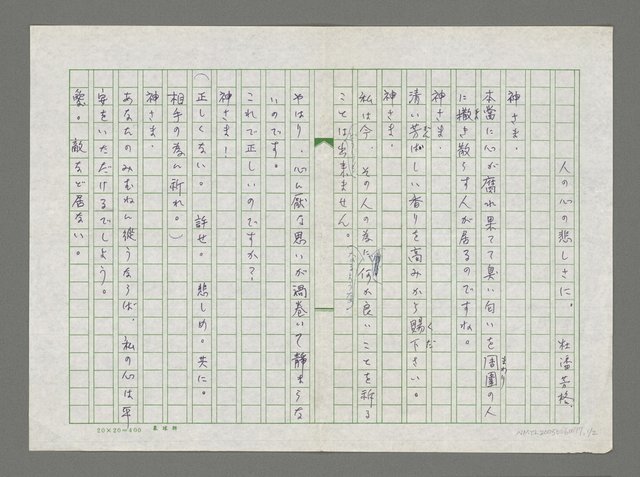 人の心の悲しさに。 杜潘芳格
神さま．
本當に心が腐れ果てて臭い匂いを周圍の人
まわり
に撒き散らす人が居るのですね。
ま
神さま．
清い芳ばしい香りを高みから賜下さい。
かん
くだ
神さま．
私は今、その人の為に何か良いことを祈る
ことは出来ません。
やはり、心に厭な思いが渦巻いて静まらな
いのです。
これで正しいのですか？
神さま！
（正しくない。 許せ。 悲しめ。共に。
相手の為に祈れ。）
神さま．
あなたのみむねに従うならば、私の心は平
安をいただけるでしよう。
愛。敵など居ない。
20×20＝400